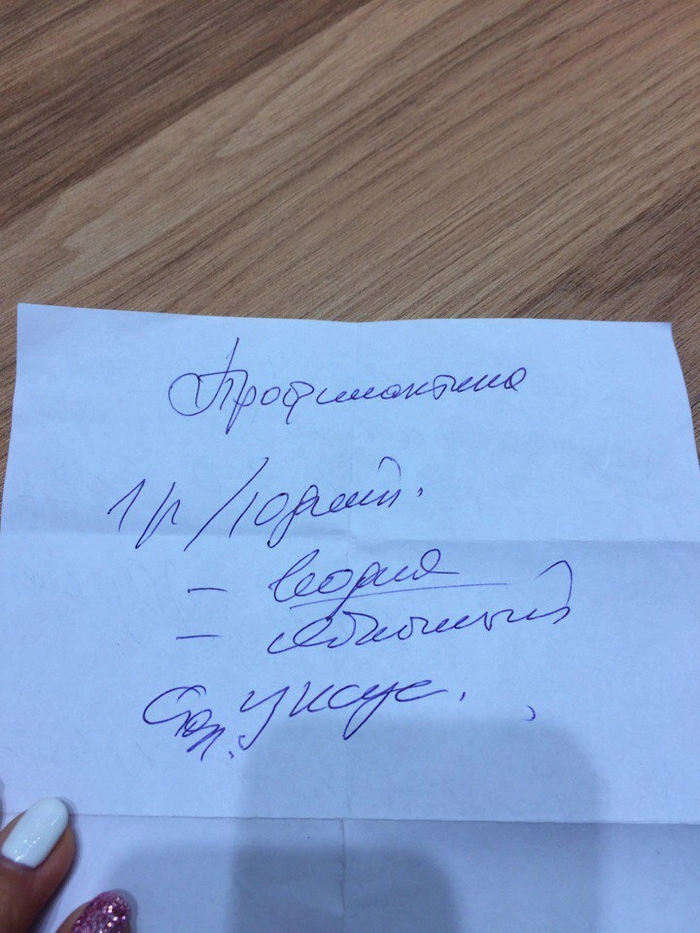 Профилактика
1 р/10 дней.
–
– яблочный
Уксус.